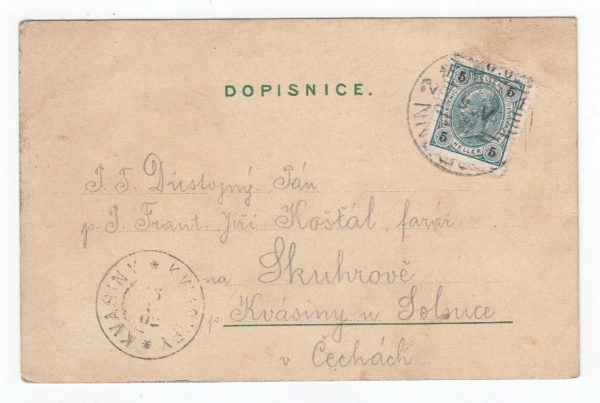 DOPISNICE.
5 5
HELLER
5 5
P. T. Důstojný Pán
p. T. Frant. Jiří Košťál, farář
na Skuhrově
p. Kvásiny u Solnice
v Čechách
KVASINY * KVASINY *